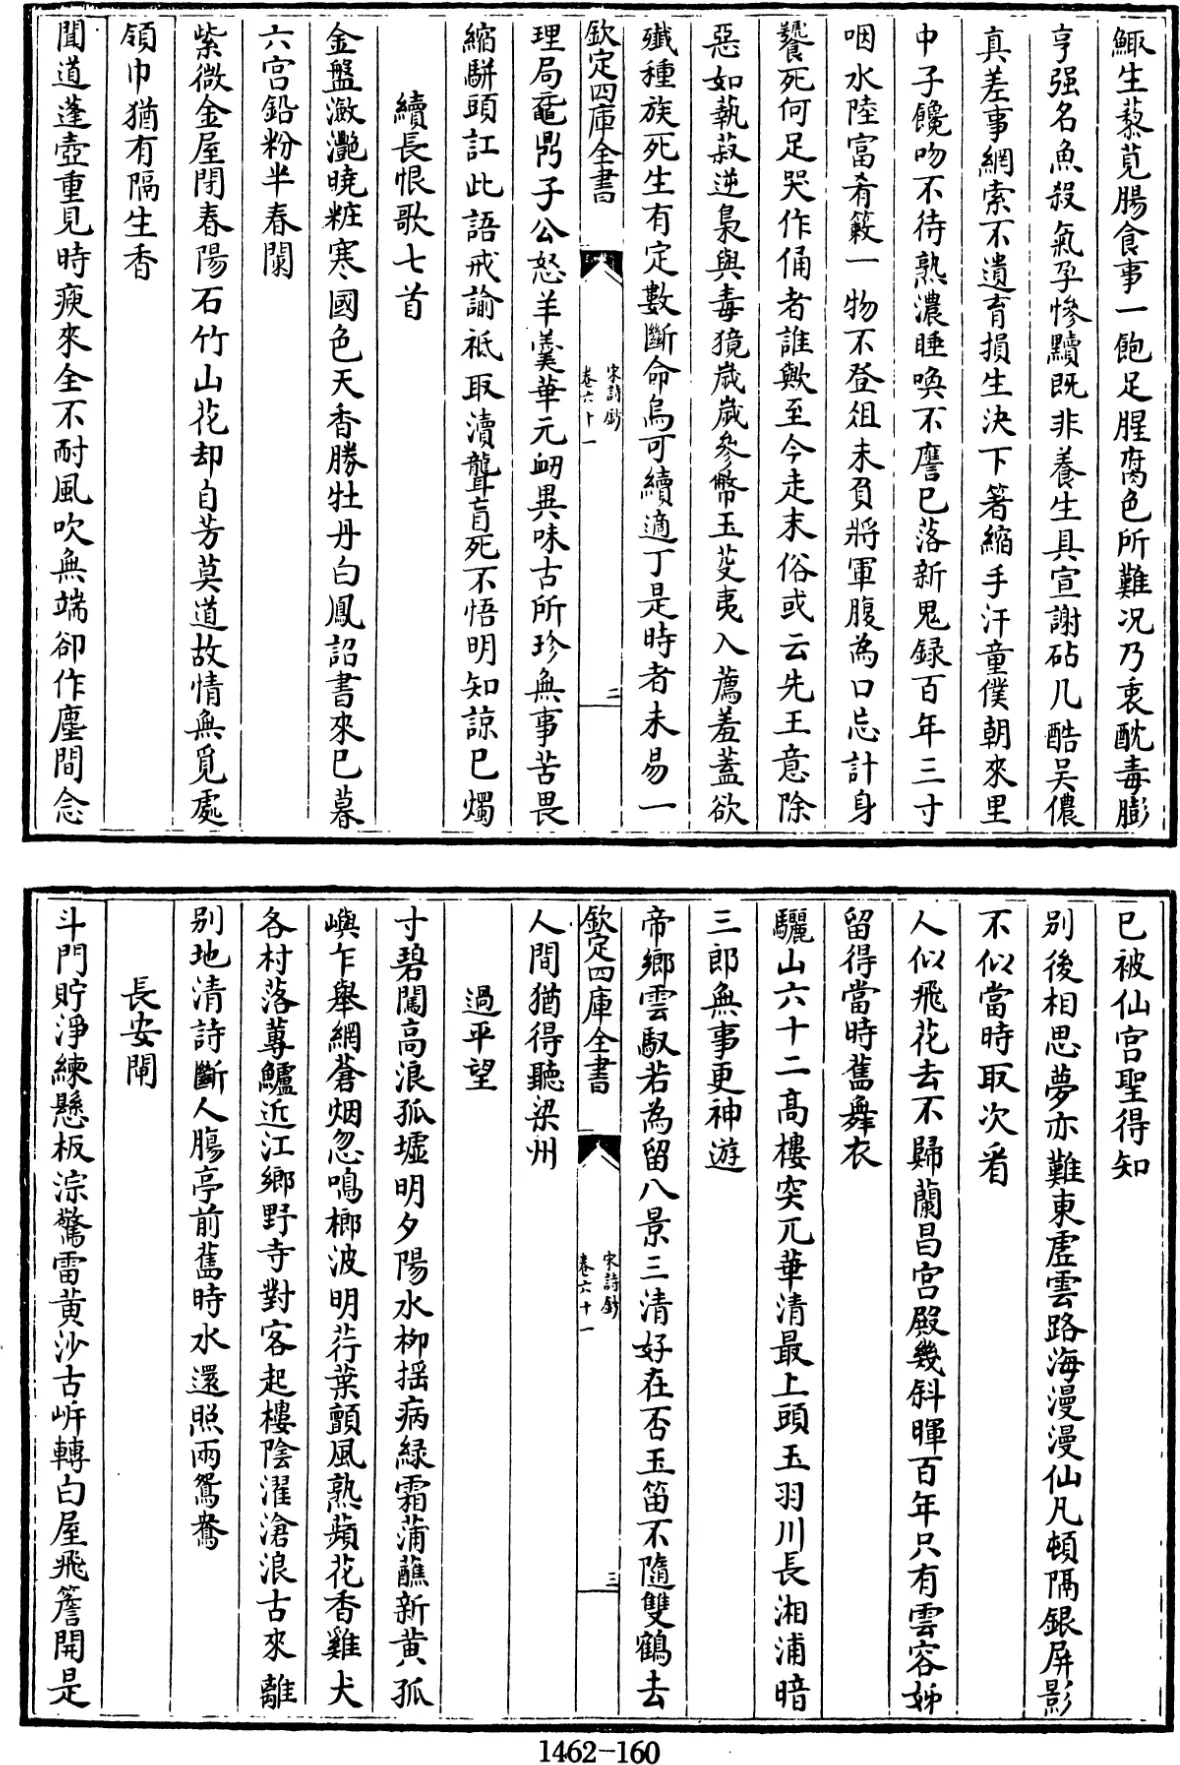 鯫生藜莧腸食事一飽足腥腐色所難况乃衷酖毒膨
亨强名魚殺氣孕慘黷既非養生具宣謝砧几酷吴儂
真差事網索不遺育損生決下箸縮手汗童僕朝來里
中子饞吻不待熟濃睡喚不譍已落新鬼録百年三寸
咽水陸富肴簌一物不登俎未負將軍腹為口忘計身
饕死何足哭作俑者誰歟至今走末俗或云先王意除
惡如執菽逆梟與毒獍歲歲參幣玉芟夷入薦羞蓋欲
殲種族死生有定數斷命烏可續適丁是時者未易一
欽定四庫全書
宋詩鈔
卷六十一
二
理局黿鼎子公怒羊羹華元衂異味古所珍無事苦畏
縮駢頭訌此語戒諭祗取瀆聾盲死不悟明知諒已燭
續長恨歌七首
金盤瀲灧曉粧寒國色天香勝牡丹白鳳詔書來已暮
六宫鉛粉半春闌
紫微金屋閉春陽石竹山花却自芳莫道故情無覓處
領巾猶有隔生香
聞道蓬壺重見時瘐來全不耐風吹無端卻作塵間念
已被仙宫聖得知
别後相思夢亦難東虚雲路海漫漫仙凡頓隔銀屏影
不似當時取次看
人似飛花去不歸蘭昌宫殿幾斜暉百年只有雲容姊
留得當時舊舞衣
驪山六十二高樓突兀華清最上頭玉羽川長湘浦暗
三郎無事更神遊
帝鄉雲馭若為留八景三清好在否玉笛不隨雙鶴去
欽定四庫全書
宋詩鈔
卷六十一
三
人間猶得聽梁州
過平望
寸碧闖高浪孤墟明夕陽水栁揺病緑霜蒲蘸新黄孤
嶼乍舉網蒼烟忽鳴榔波明荇葉顫風熟蘋花香雞犬
各村落蓴鱸近江鄉野寺對客起樓陰濯滄浪古來離
别地清詩斷人腸亭前舊時水還照兩鴛鴦
長安閘
斗門貯淨練懸板淙驚雷黄沙古岓轉白屋飛簷開是
1462-160